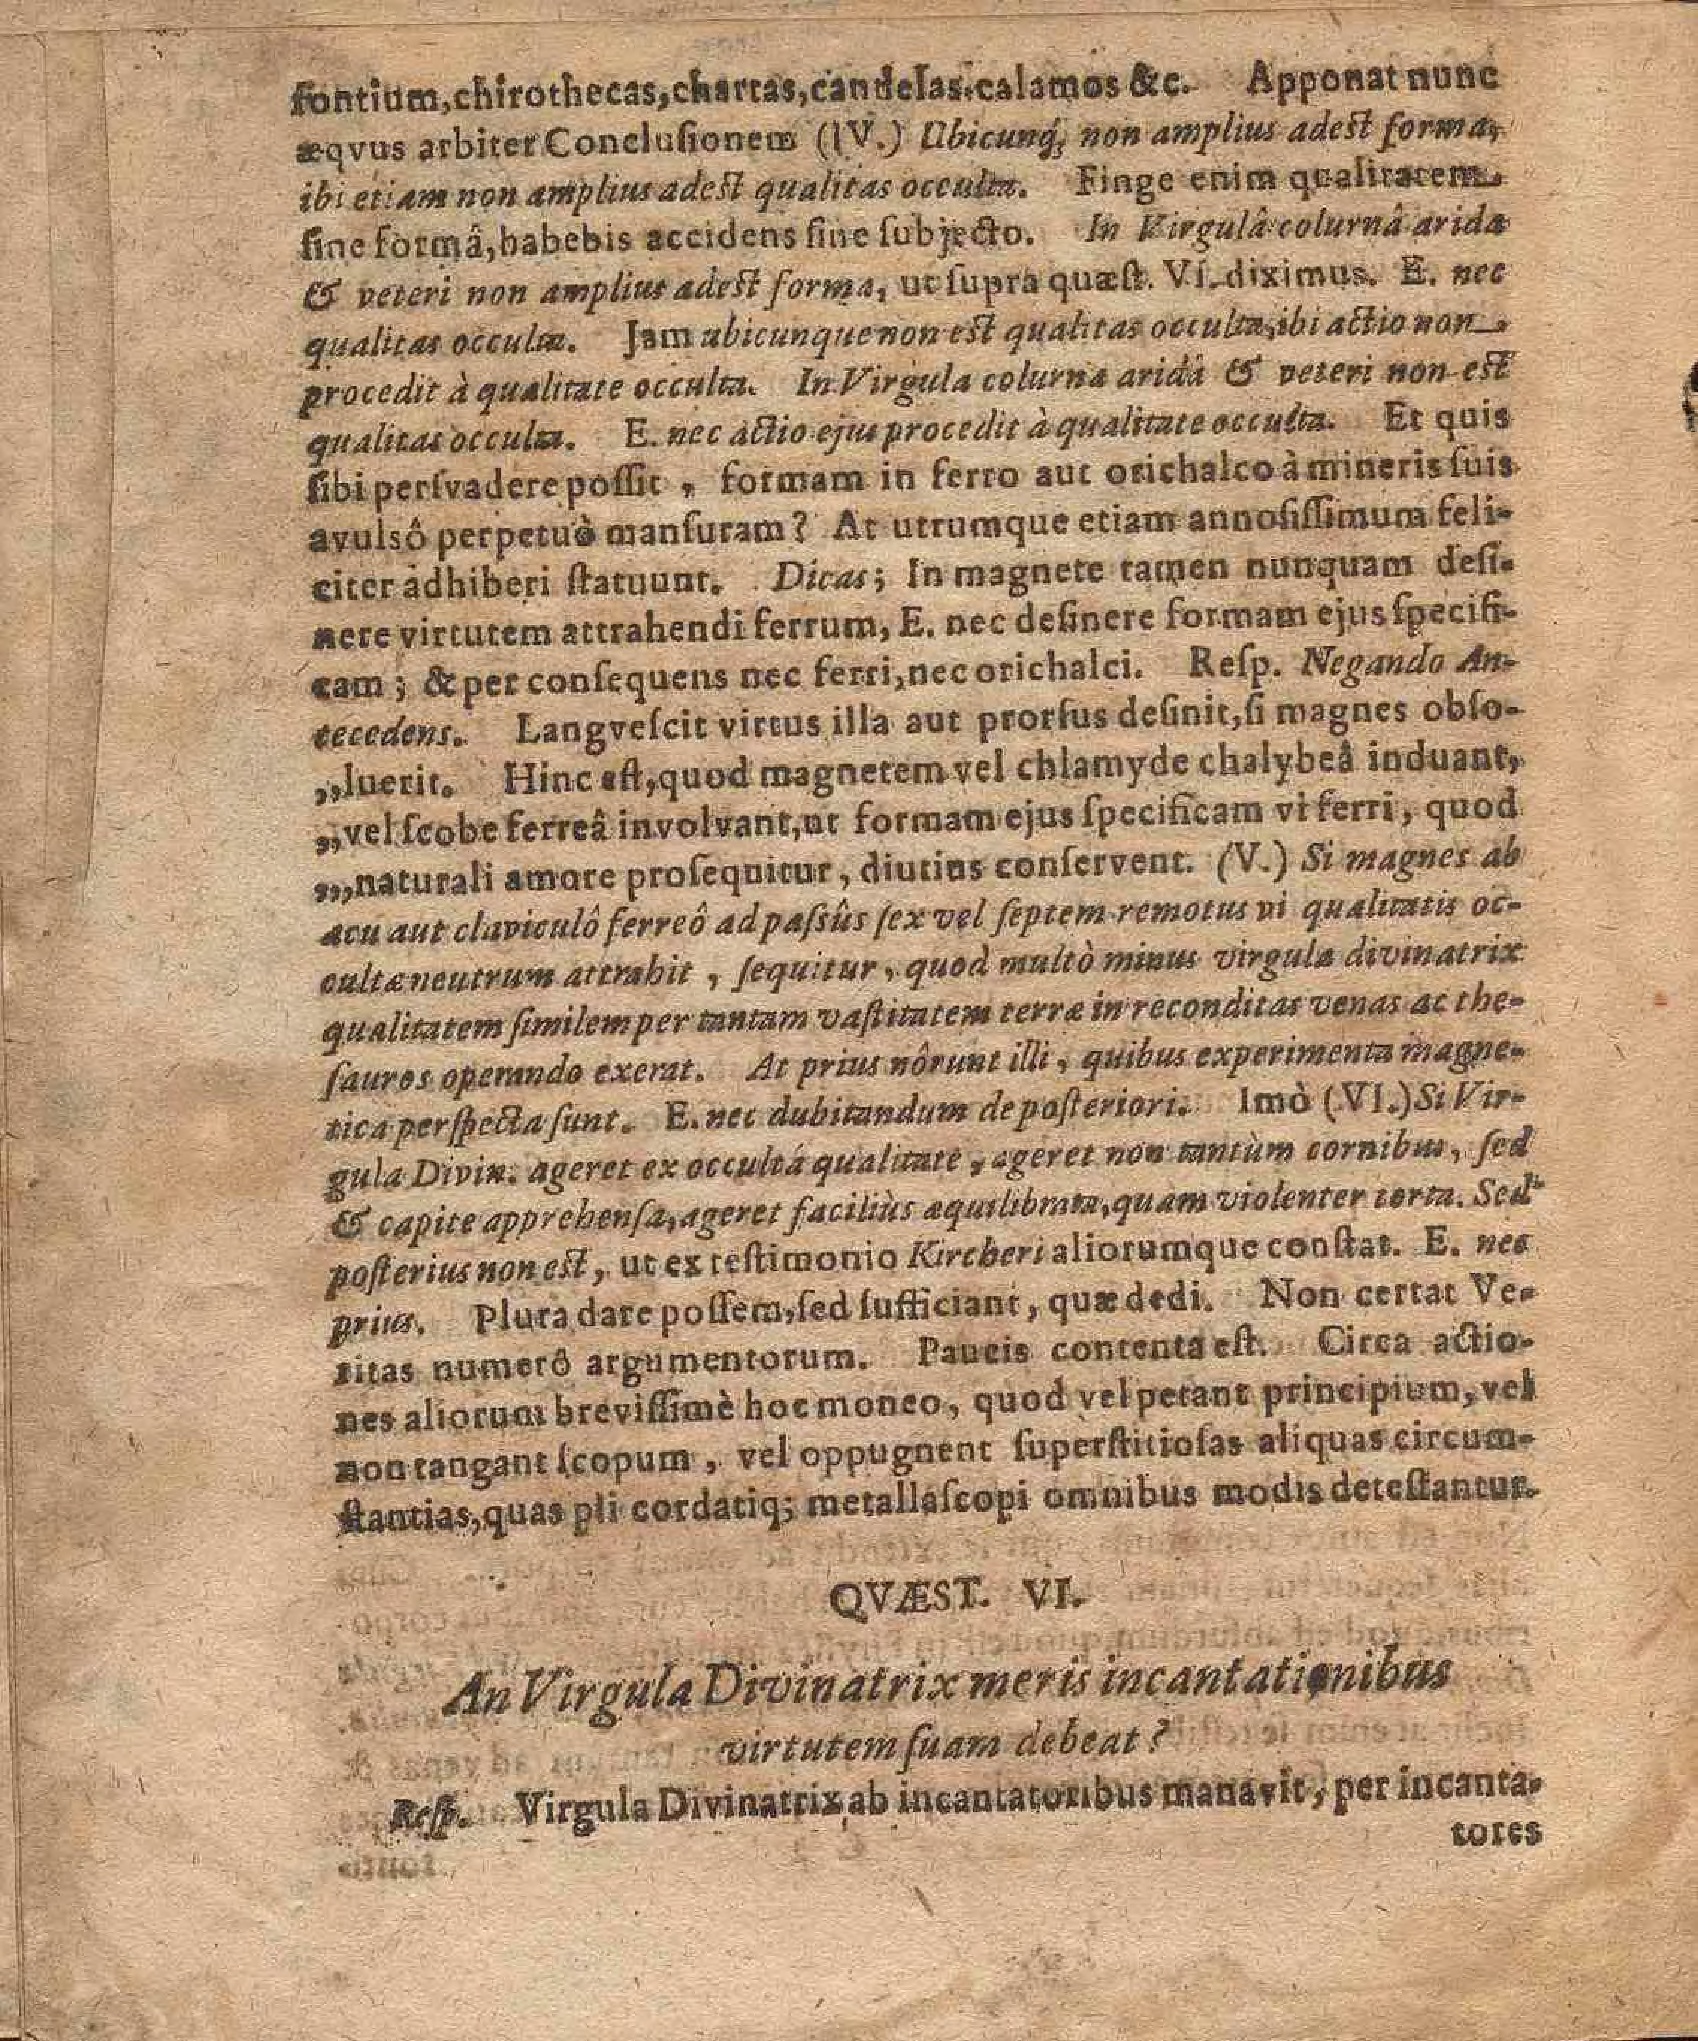 fontium, chirothecas, chartas, candelas, calamos &c. Apponat nunc
æqvus arbiter Concluſionem (IV.) Ubicunq; non amplius adeſt forma,
ibi etiam non amplius adeſt qualitas occulta. Finge enim qualitatem
ſine formâ, habebis accidens ſine ſubjecto. In Virgulâ colurnâ arida
& veteri non amplius adeſt forma, ut ſupra quæſt. VI. diximus. E. nec
qualitas occulta. Jam ubicunque non eſt qualitas occulta, ibi actio non
procedit à qualitate occulta. In Virgula colurna aridâ & veteri non eſt
qualitas occulta. E. nec actio ejus procedit à qualitate occulta. Et quis
ſibi perſvadere poſſit, formam in ferro aut orichalco à mineris ſuis
avulsô perpetuò manſuram? At utrumque etiam annoſiſſimum feli-
citer adhiberi ſtatuunt. Dicas; In magnete tamen nunquam deſi-
nere virtutem attrahendi ferrum, E. nec deſinere formam ejus ſpecifi-
cam; & per conſequens nec ferri, nec orichalci. Reſp. Negando An-
tecedens. Langveſcit virtus illa aut prorſus deſinit, ſi magnes obſo-
„luerit. Hinc eſt, quod magnetem vel chlamyde chalybeâ induant,
„vel ſcobe ferreâ involvant, ut formam ejus ſpecificam vi ferri, quod
„naturali amore proſequitur, diutius conſervent. (V.) Si magnes ab
acu aut claviculô ferreô ad paſsûs ſex vel ſeptem remotus vi qualitatis oc-
cultæ neutrum attrahit, ſequitur, quod multò minus virgula divinatrix
qualitatem ſimilem per tantam vaſtitatem terræ in reconditas venas ac the-
ſauros operando exerat. At prius nôrunt illi, quibus experimenta magne-
tica perſpecta ſunt. E. nec dubitandum de poſteriori. Imò (VI.) Si Vir-
gula Divin. ageret ex occultâ qualitate, ageret non tantùm cornibus, ſed
& capite apprehenſa, ageret faciliùs æquilibrata, quam violenter torta. Sed
poſterius non eſt, ut ex teſtimonio Kircheri aliorumque conſtat. E. nec
prius. Plura dare poſſem, ſed ſufficiant, quæ dedi. Non certat Ve-
ritas numerô argumentorum. Paucis contenta eſt. Circa actio-
nes aliorum breviſſimè hoc moneo, quod vel petant principium, vel
non tangant ſcopum, vel oppugnent ſuperſtitioſas aliquas circum-
ſtantias, quas pii cordatiq; metallaſcopi omnibus modis deteſtantur.
QVÆST. VI.
An Virgula Divinatrix meris incantationibus
virtutem ſuam debeat?
Reſp. Virgula Divinatrix ab incantatoribus manavit, per incanta-
tores